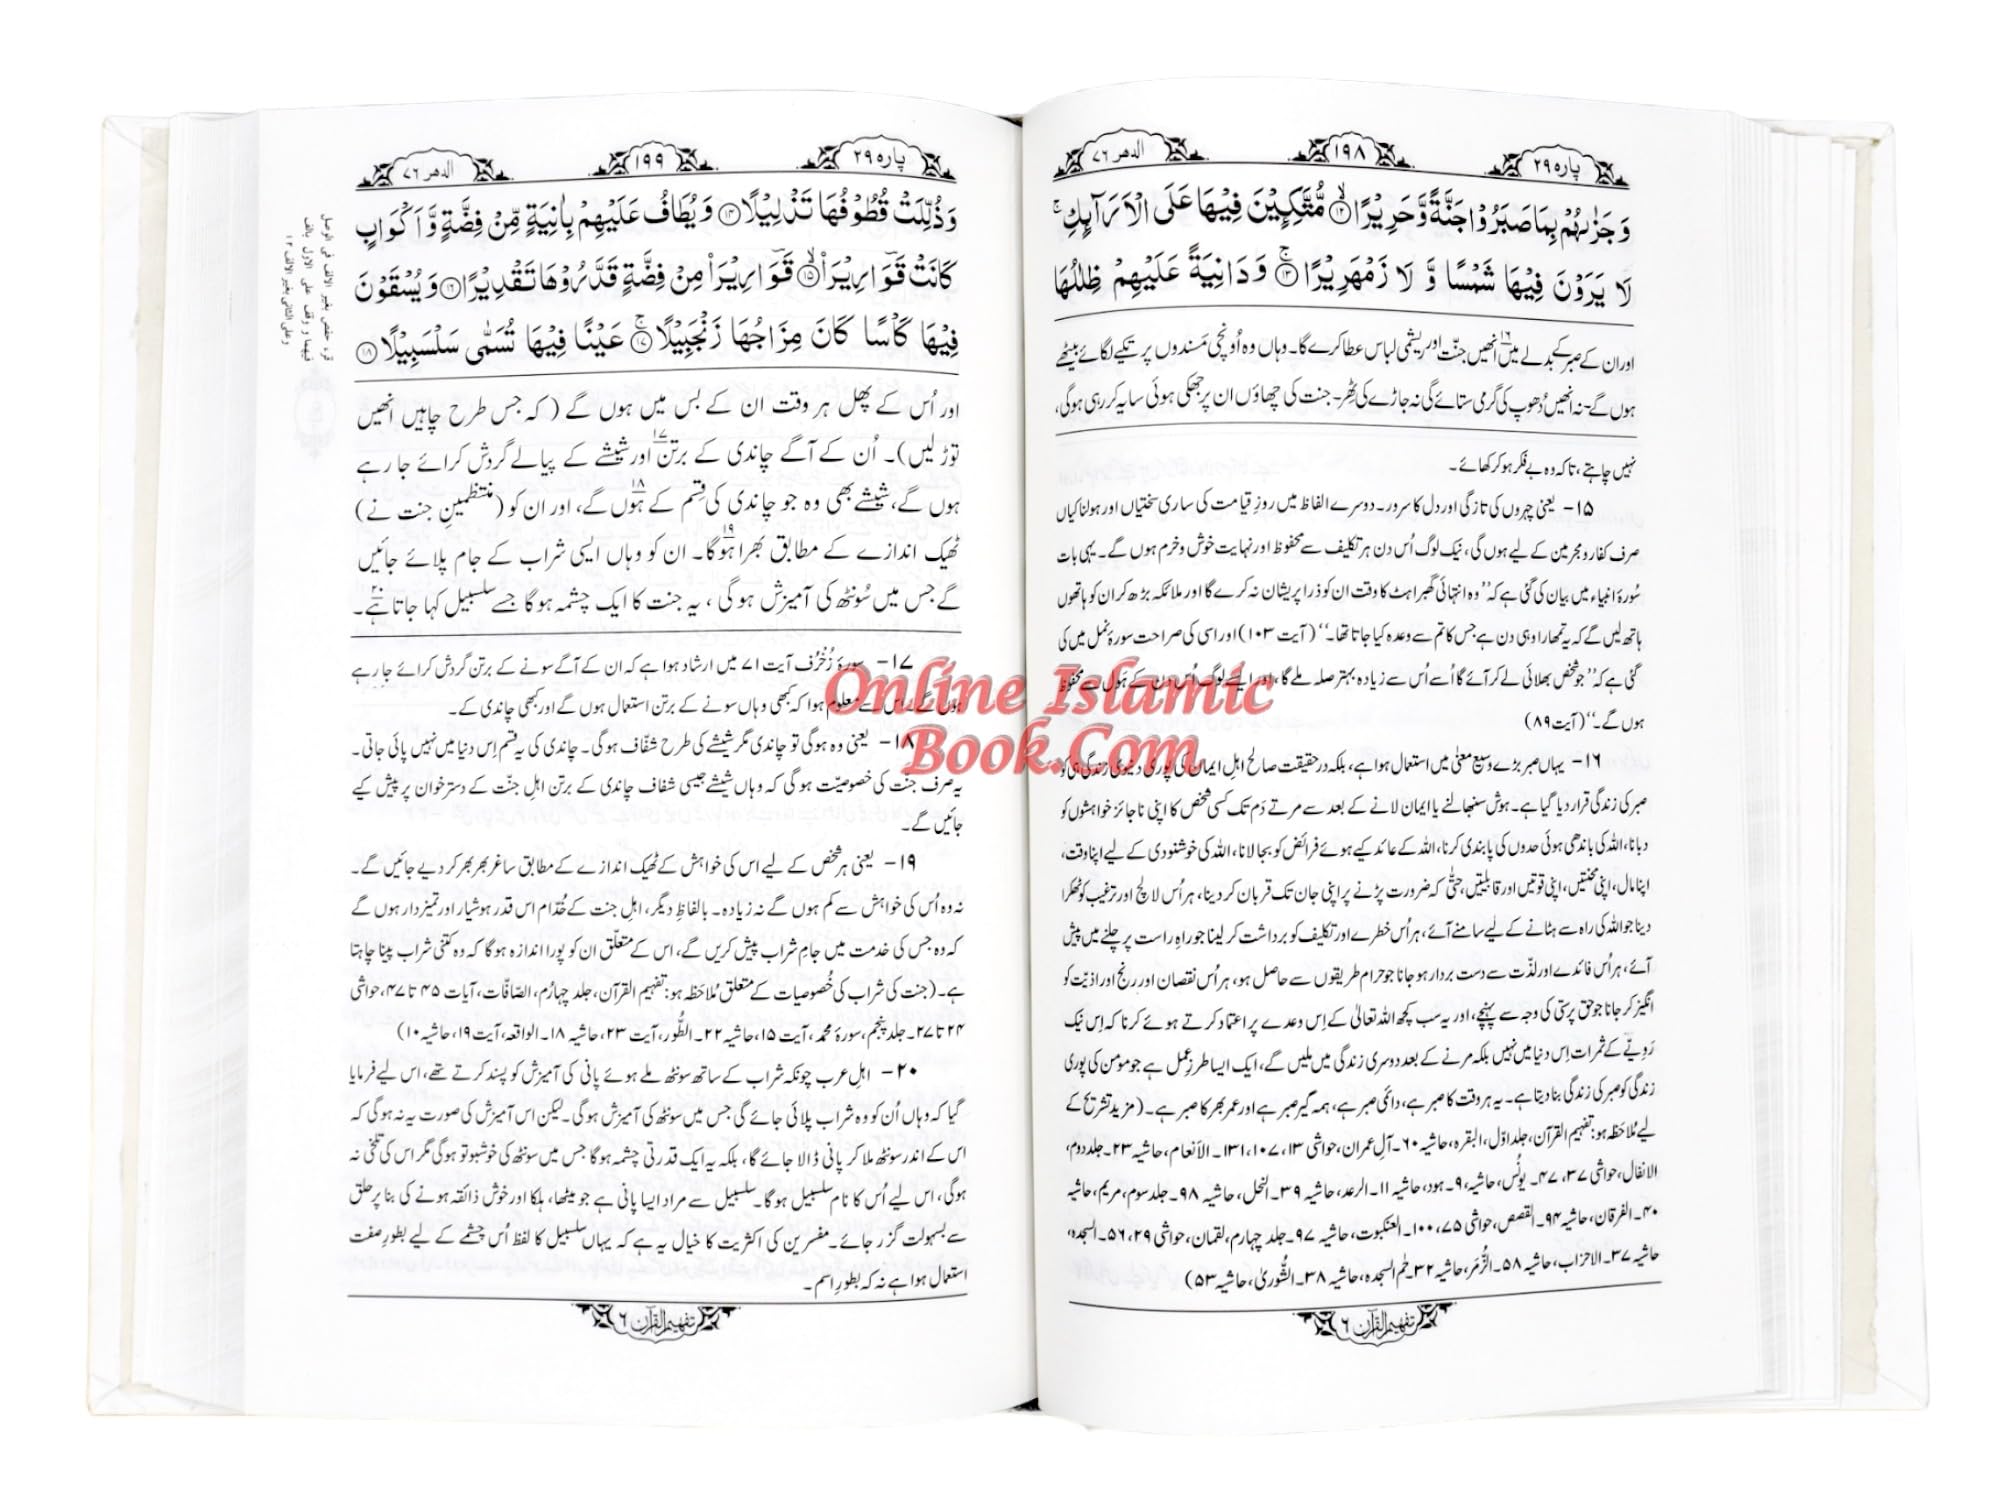 پارہ ۲۹
۱۹۸
الدھر ۷۶
وَجَزٰىهُمْ بِمَا صَبَرُوْا جَنَّةً وَّحَرِيْرًا ۱۲ مُّتَّكِـِٕيْنَ فِيْهَا عَلَى الْاَرَآىِٕكِ ۚ
لَا يَرَوْنَ فِيْهَا شَمْسًا وَّ لَا زَمْهَرِيْرًا ۱۳ وَ دَانِيَةً عَلَيْهِمْ ظِلٰلُهَا
اور ان کے صبر کے بدلے میں۱۶ انھیں جنّت اور ریشمی لباس عطا کرے گا۔ وہاں وہ اُونچی مَسندوں پر تکیے لگائے بیٹھے
ہوں گے۔ نہ انھیں دُھوپ کی گرمی ستائے گی نہ جاڑے کی ٹھِر۔ جنت کی چھاؤں ان پر جھکی ہوئی سایہ کر رہی ہوگی،
نہیں چاہتے، تاکہ وہ بے فکر ہو کر کھائے۔
۱۵- یعنی چہروں کی تازگی اور دل کا سرور۔ دوسرے الفاظ میں روزِ قیامت کی ساری سختیاں اور ہولناکیاں
صرف کفار و مجرمین کے لیے ہوں گی، نیک لوگ اُس دن ہر تکلیف سے محفوظ اور نہایت خوش و خرم ہوں گے۔ یہی بات
سُورۂ انبیاء میں بیان کی گئی ہے کہ ”وہ انتہائی گھبراہٹ کا وقت ان کو ذرا پریشان نہ کرے گا اور ملائکہ بڑھ کر ان کو ہاتھوں
ہاتھ لیں گے کہ یہ تمھارا وہی دن ہے جس کا تم سے وعدہ کیا جاتا تھا۔“ (آیت ۱۰۳) اور اسی کی صراحت سورۂ نمل میں کی
گئی ہے کہ ”جو شخص بھلائی لے کر آئے گا اُسے اُس سے زیادہ بہتر صلہ ملے گا، اور ایسے لوگ اُس دن کے ہَول سے محفوظ
ہوں گے۔“ (آیت ۸۹)
۱۶- یہاں صبر بڑے وسیع معنیٰ میں استعمال ہوا ہے، بلکہ درحقیقت صالح اہلِ ایمان کی پوری دنیوی زندگی ہی کو
صبر کی زندگی قرار دیا گیا ہے۔ ہوش سنبھالنے یا ایمان لانے کے بعد سے مرتے دَم تک کسی شخص کا اپنی ناجائز خواہشوں کو
دبانا، اللہ کی باندھی ہوئی حدوں کی پابندی کرنا، اللہ کے عائد کیے ہوئے فرائض کو بجا لانا، اللہ کی خوشنودی کے لیے اپنا وقت،
اپنا مال، اپنی محنتیں، اپنی قوتیں اور قابلیتیں، حتّٰی کہ ضرورت پڑنے پر اپنی جان تک قربان کر دینا، ہر اُس لالچ اور ترغیب کو ٹھکرا
دینا جو اللہ کی راہ سے ہٹانے کے لیے سامنے آئے، ہر اُس خطرے اور تکلیف کو برداشت کر لینا جو راہِ راست پر چلنے میں پیش
آئے، ہر اُس فائدے اور لذّت سے دست بردار ہو جانا جو حرام طریقوں سے حاصل ہو، ہر اُس نقصان اور رنج اور اذیّت کو
انگیز کر جانا جو حق پرستی کی وجہ سے پہنچے، اور یہ سب کچھ اللہ تعالیٰ کے اِس وعدے پر اعتماد کرتے ہوئے کرنا کہ اِس نیک
رَویّے کے ثمرات اِس دنیا میں نہیں بلکہ مرنے کے بعد دوسری زندگی میں ملیں گے، ایک ایسا طرزِ عمل ہے جو مومن کی پوری
زندگی کو صبر کی زندگی بنا دیتا ہے۔ یہ ہر وقت کا صبر ہے، دائمی صبر ہے، ہمہ گیر صبر ہے اور عمر بھر کا صبر ہے۔ (مزید تشریح کے
لیے مُلاحَظہ ہو: تفہیم القرآن، جلد اوّل، البقرہ، حاشیہ ۶۰۔ آلِ عمران، حواشی ۱۳، ۱۰۷، ۱۳۱۔ الانعام، حاشیہ ۲۳۔ جلد دوم،
الانفال، حواشی ۳۷، ۴۷۔ یونس، حاشیہ ۹۔ ہود، حاشیہ ۱۱۔ الرعد، حاشیہ ۳۹۔ النحل، حاشیہ ۹۸۔ جلد سوم، مریم، حاشیہ
۴۰۔ الفرقان، حاشیہ ۹۴۔ القصص، حواشی ۷۵، ۱۰۰۔ العنکبوت، حاشیہ ۹۷۔ جلد چہارم، لقمان، حواشی ۲۹، ۵۶۔ السجدہ،
حاشیہ ۳۷۔ الاحزاب، حاشیہ ۵۸۔ الزُّمَر، حاشیہ ۳۲۔ حٰم السجدہ، حاشیہ ۳۸۔ الشُّوریٰ، حاشیہ ۵۳)
تفہیم القرآن ۶
پارہ ۲۹
۱۹۹
الدھر ۷۶
وَذُلِّلَتْ قُطُوْفُهَا تَذْلِيْلًا ۱۴ وَيُطَافُ عَلَيْهِمْ بِاٰنِيَةٍ مِّنْ فِضَّةٍ وَّاَكْوَابٍ
كَانَتْ قَوَارِيْرَا۠ ۱۵ قَوَارِيْرَا۠ مِنْ فِضَّةٍ قَدَّرُوْهَا تَقْدِيْرًا ۱۶ وَيُسْقَوْنَ
فِيْهَا كَاْسًا كَانَ مِزَاجُهَا زَنْجَبِيْلًا ۱۷ عَيْنًا فِيْهَا تُسَمّٰى سَلْسَبِيْلًا ۱۸
قرء حفص بغیر الالف فی الوصل
فیہما و وقف علی الاول بالف
وعلی الثانی بغیر الالف ۱۲
اور اُس کے پھل ہر وقت ان کے بس میں ہوں گے (کہ جس طرح چاہیں انھیں
توڑ لیں)۔ اُن کے آگے چاندی کے برتن۱۷ اور شیشے کے پیالے گردش کرائے جا رہے
ہوں گے، شیشے بھی وہ جو چاندی کی قِسم کے ہوں۱۸ گے، اور ان کو (منتظمینِ جنت نے)
ٹھیک اندازے کے مطابق بھرا ہوگا۱۹۔ ان کو وہاں ایسی شراب کے جام پلائے جائیں
گے جس میں سُونٹھ کی آمیزش ہوگی، یہ جنت کا ایک چشمہ ہوگا جسے سلسبیل کہا جاتا ہے۲۰۔
۱۷- سورۂ زُخْرُف آیت ۷۱ میں ارشاد ہوا ہے کہ ان کے آگے سونے کے برتن گردش کرائے جا رہے
ہوں گے۔ اس سے معلوم ہوا کہ کبھی وہاں سونے کے برتن استعمال ہوں گے اور کبھی چاندی کے۔
۱۸- یعنی وہ ہوگی تو چاندی مگر شیشے کی طرح شفّاف ہوگی۔ چاندی کی یہ قسم اِس دنیا میں نہیں پائی جاتی۔
یہ صرف جنّت کی خصوصیّت ہوگی کہ وہاں شیشے جیسی شفاف چاندی کے برتن اہلِ جنّت کے دسترخوان پر پیش کیے
جائیں گے۔
۱۹- یعنی ہر شخص کے لیے اس کی خواہش کے ٹھیک اندازے کے مطابق ساغر بھر بھر کر دیے جائیں گے۔
نہ وہ اُس کی خواہش سے کم ہوں گے نہ زیادہ۔ بالفاظِ دیگر، اہلِ جنت کے خُدّام اس قدر ہوشیار اور تمیزدار ہوں گے
کہ وہ جس کی خدمت میں جامِ شراب پیش کریں گے، اس کے متعلّق ان کو پورا اندازہ ہوگا کہ وہ کتنی شراب پینا چاہتا
ہے۔ (جنت کی شراب کی خُصوصیات کے متعلق مُلاحَظہ ہو: تفہیم القرآن، جلد چہارُم، الصّافّات، آیات ۴۵ تا ۴۷، حواشی
۲۴ تا ۲۷۔ جلد پنجم، سورۂ محمد، آیت ۱۵، حاشیہ ۲۲۔ الطُّور، آیت ۲۳، حاشیہ ۱۸۔ الواقعہ، آیت ۱۹، حاشیہ ۱۰)
۲۰- اہلِ عرب چونکہ شراب کے ساتھ سونٹھ ملے ہوئے پانی کی آمیزش کو پسند کرتے تھے، اس لیے فرمایا
گیا کہ وہاں اُن کو وہ شراب پلائی جائے گی جس میں سونٹھ کی آمیزش ہوگی۔ لیکن اس آمیزش کی صورت یہ نہ ہوگی کہ
اس کے اندر سونٹھ ملا کر پانی ڈالا جائے گا، بلکہ یہ ایک قدرتی چشمہ ہوگا جس میں سونٹھ کی خوشبو تو ہوگی مگر اس کی تلخی نہ
ہوگی، اس لیے اُس کا نام سلسبیل ہوگا۔ سلسبیل سے مراد ایسا پانی ہے جو میٹھا، ہلکا اور خوش ذائقہ ہونے کی بنا پر حلق
سے بسہولت گزر جائے۔ مفسرین کی اکثریت کا خیال یہ ہے کہ یہاں سلسبیل کا لفظ اُس چشمے کے لیے بطورِ صفت
استعمال ہوا ہے نہ کہ بطورِ اسم۔
تفہیم القرآن ۶
Online Islamic
Book.Com